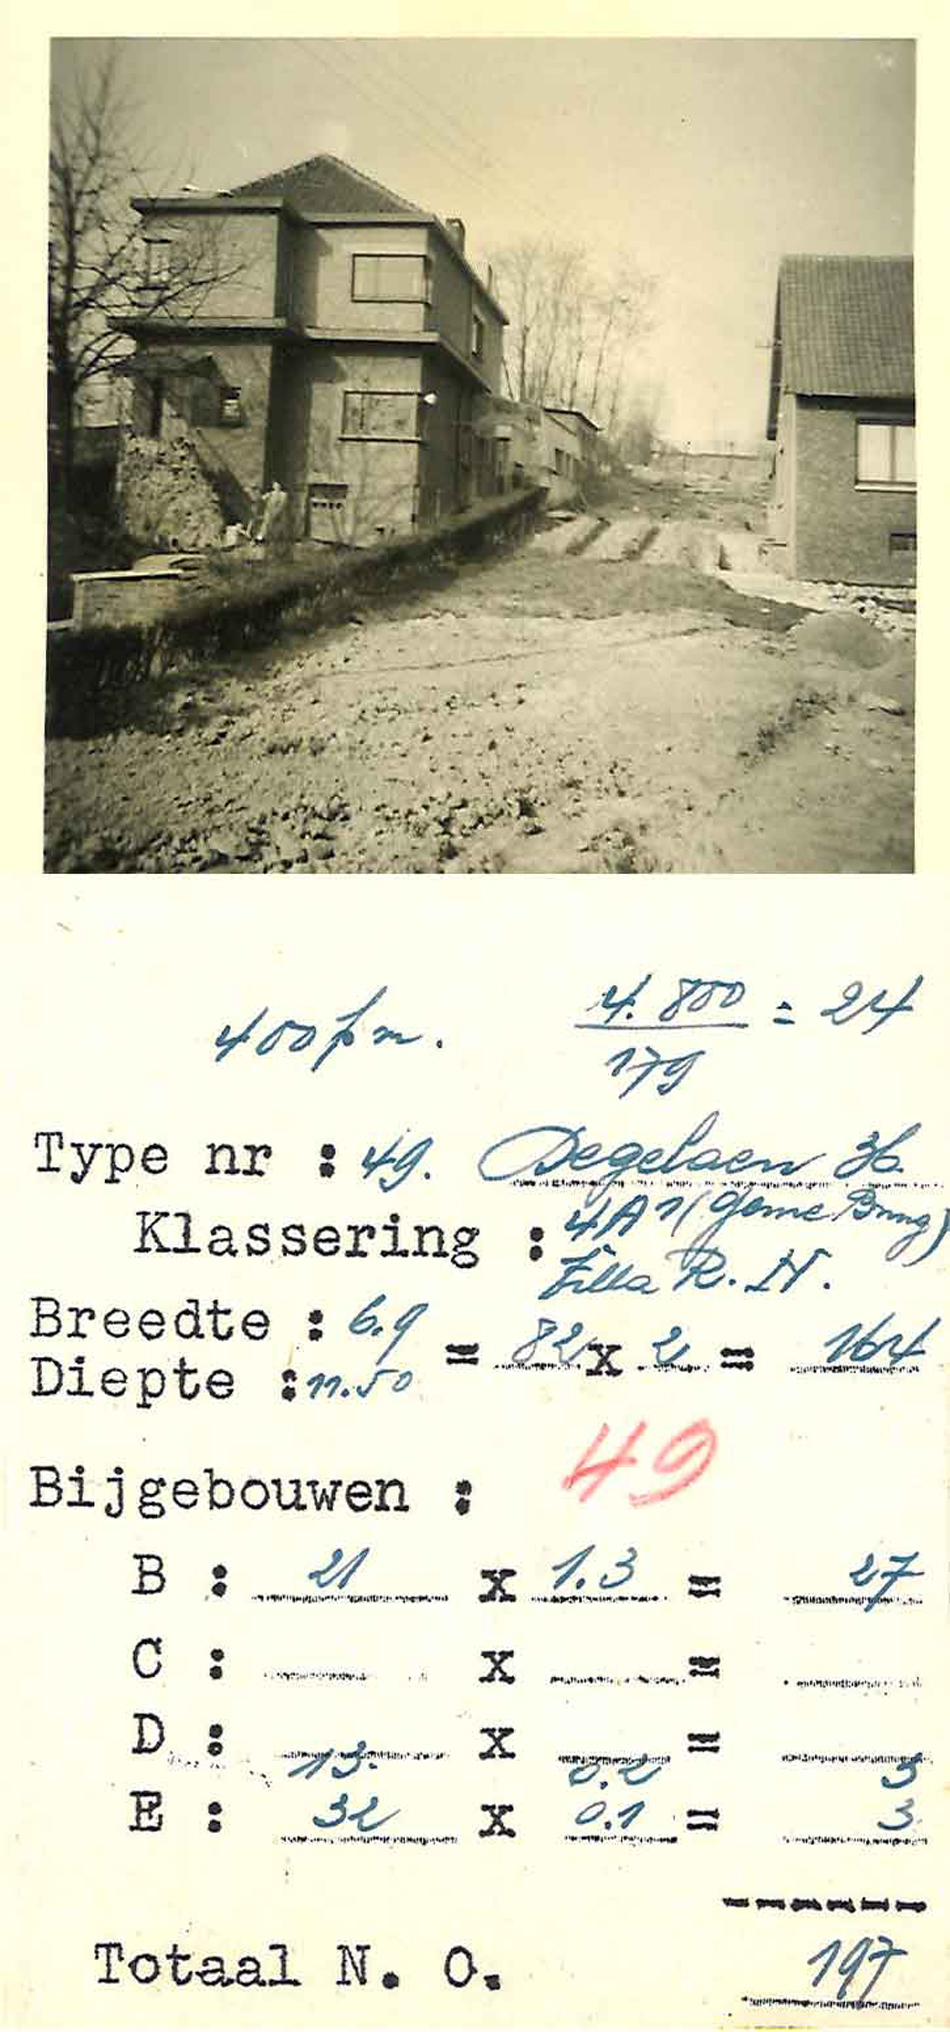 400 f p m.
4.800 = 24
179
Type nr : 49. Degelaen 36
Klassering : 4A1 (Geme Brug)
Villa R. H.
Breedte : 6.9
Diepte : 11.50 = 82 x 2 = 164
49
Bijgebouwen :
B : 21 x 1.3 = 27
C : x =
D : x =
13. 0.2 3
E : 32 x 0.1 = 3
Totaal N. O. 197